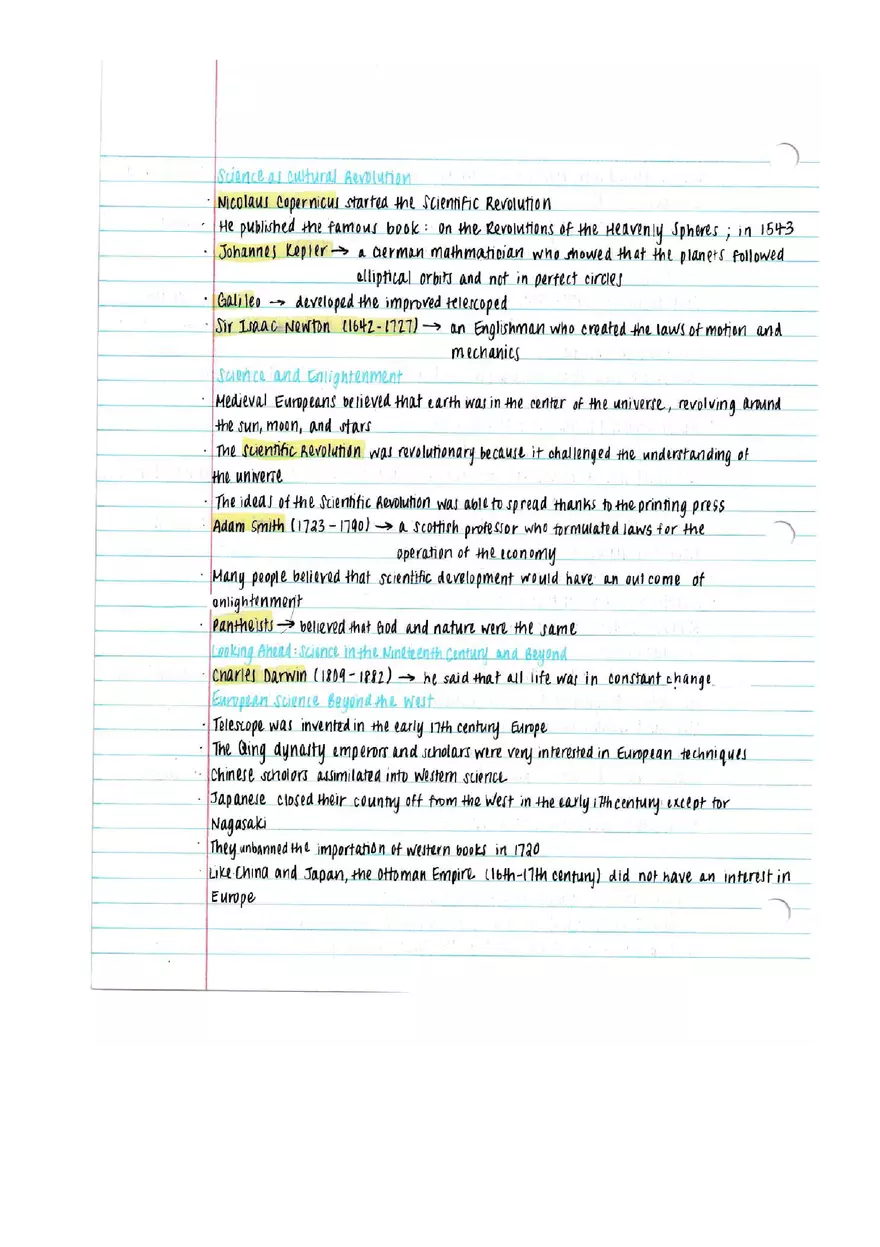 Science as Cultural Revolution
· Nicolaus Copernicus started the Scientific Revolution
· He published the famous book: on the Revolutions of the Heavenly Spheres ; in 1543
· Johannes Kepler → a German mathmatician who showed that the planets followed
elliptical orbits and not in perfect circles
· Galileo → developed the improved telescoped
· Sir Isaac Newton (1642-1727) → an Englishman who created the laws of motion and
mechanics
Science and Enlightenment
· Medieval Europeans believed that earth was in the center of the universe, revolving around
the sun, moon, and stars
· The Scientific Revolution was revolutionary because it challenged the understanding of
the universe
· The ideas of the Scientific Revolution was able to spread thanks to the printing press
· Adam Smith (1723-1790) → a Scottish professor who formulated laws for the
operation of the economy
· Many people believed that scientific development would have an outcome of
enlightenment
· Pantheists → believed that God and nature were the same
Looking Ahead: Science in the Nineteenth Century and Beyond
· Charles Darwin (1809-1882) → he said that all life was in constant change
European Science Beyond the West
· Telescope was invented in the early 17th century Europe
· The Qing dynasty emperors and scholars were very interested in European techniques
· Chinese scholors assimilated into Western science
· Japanese closed their country off from the West in the early 17th century except for
Nagasaki
· They unbanned the importation of western books in 1720
· Like China and Japan, the Ottoman Empire (16th-17th century) did not have an interest in
Europe